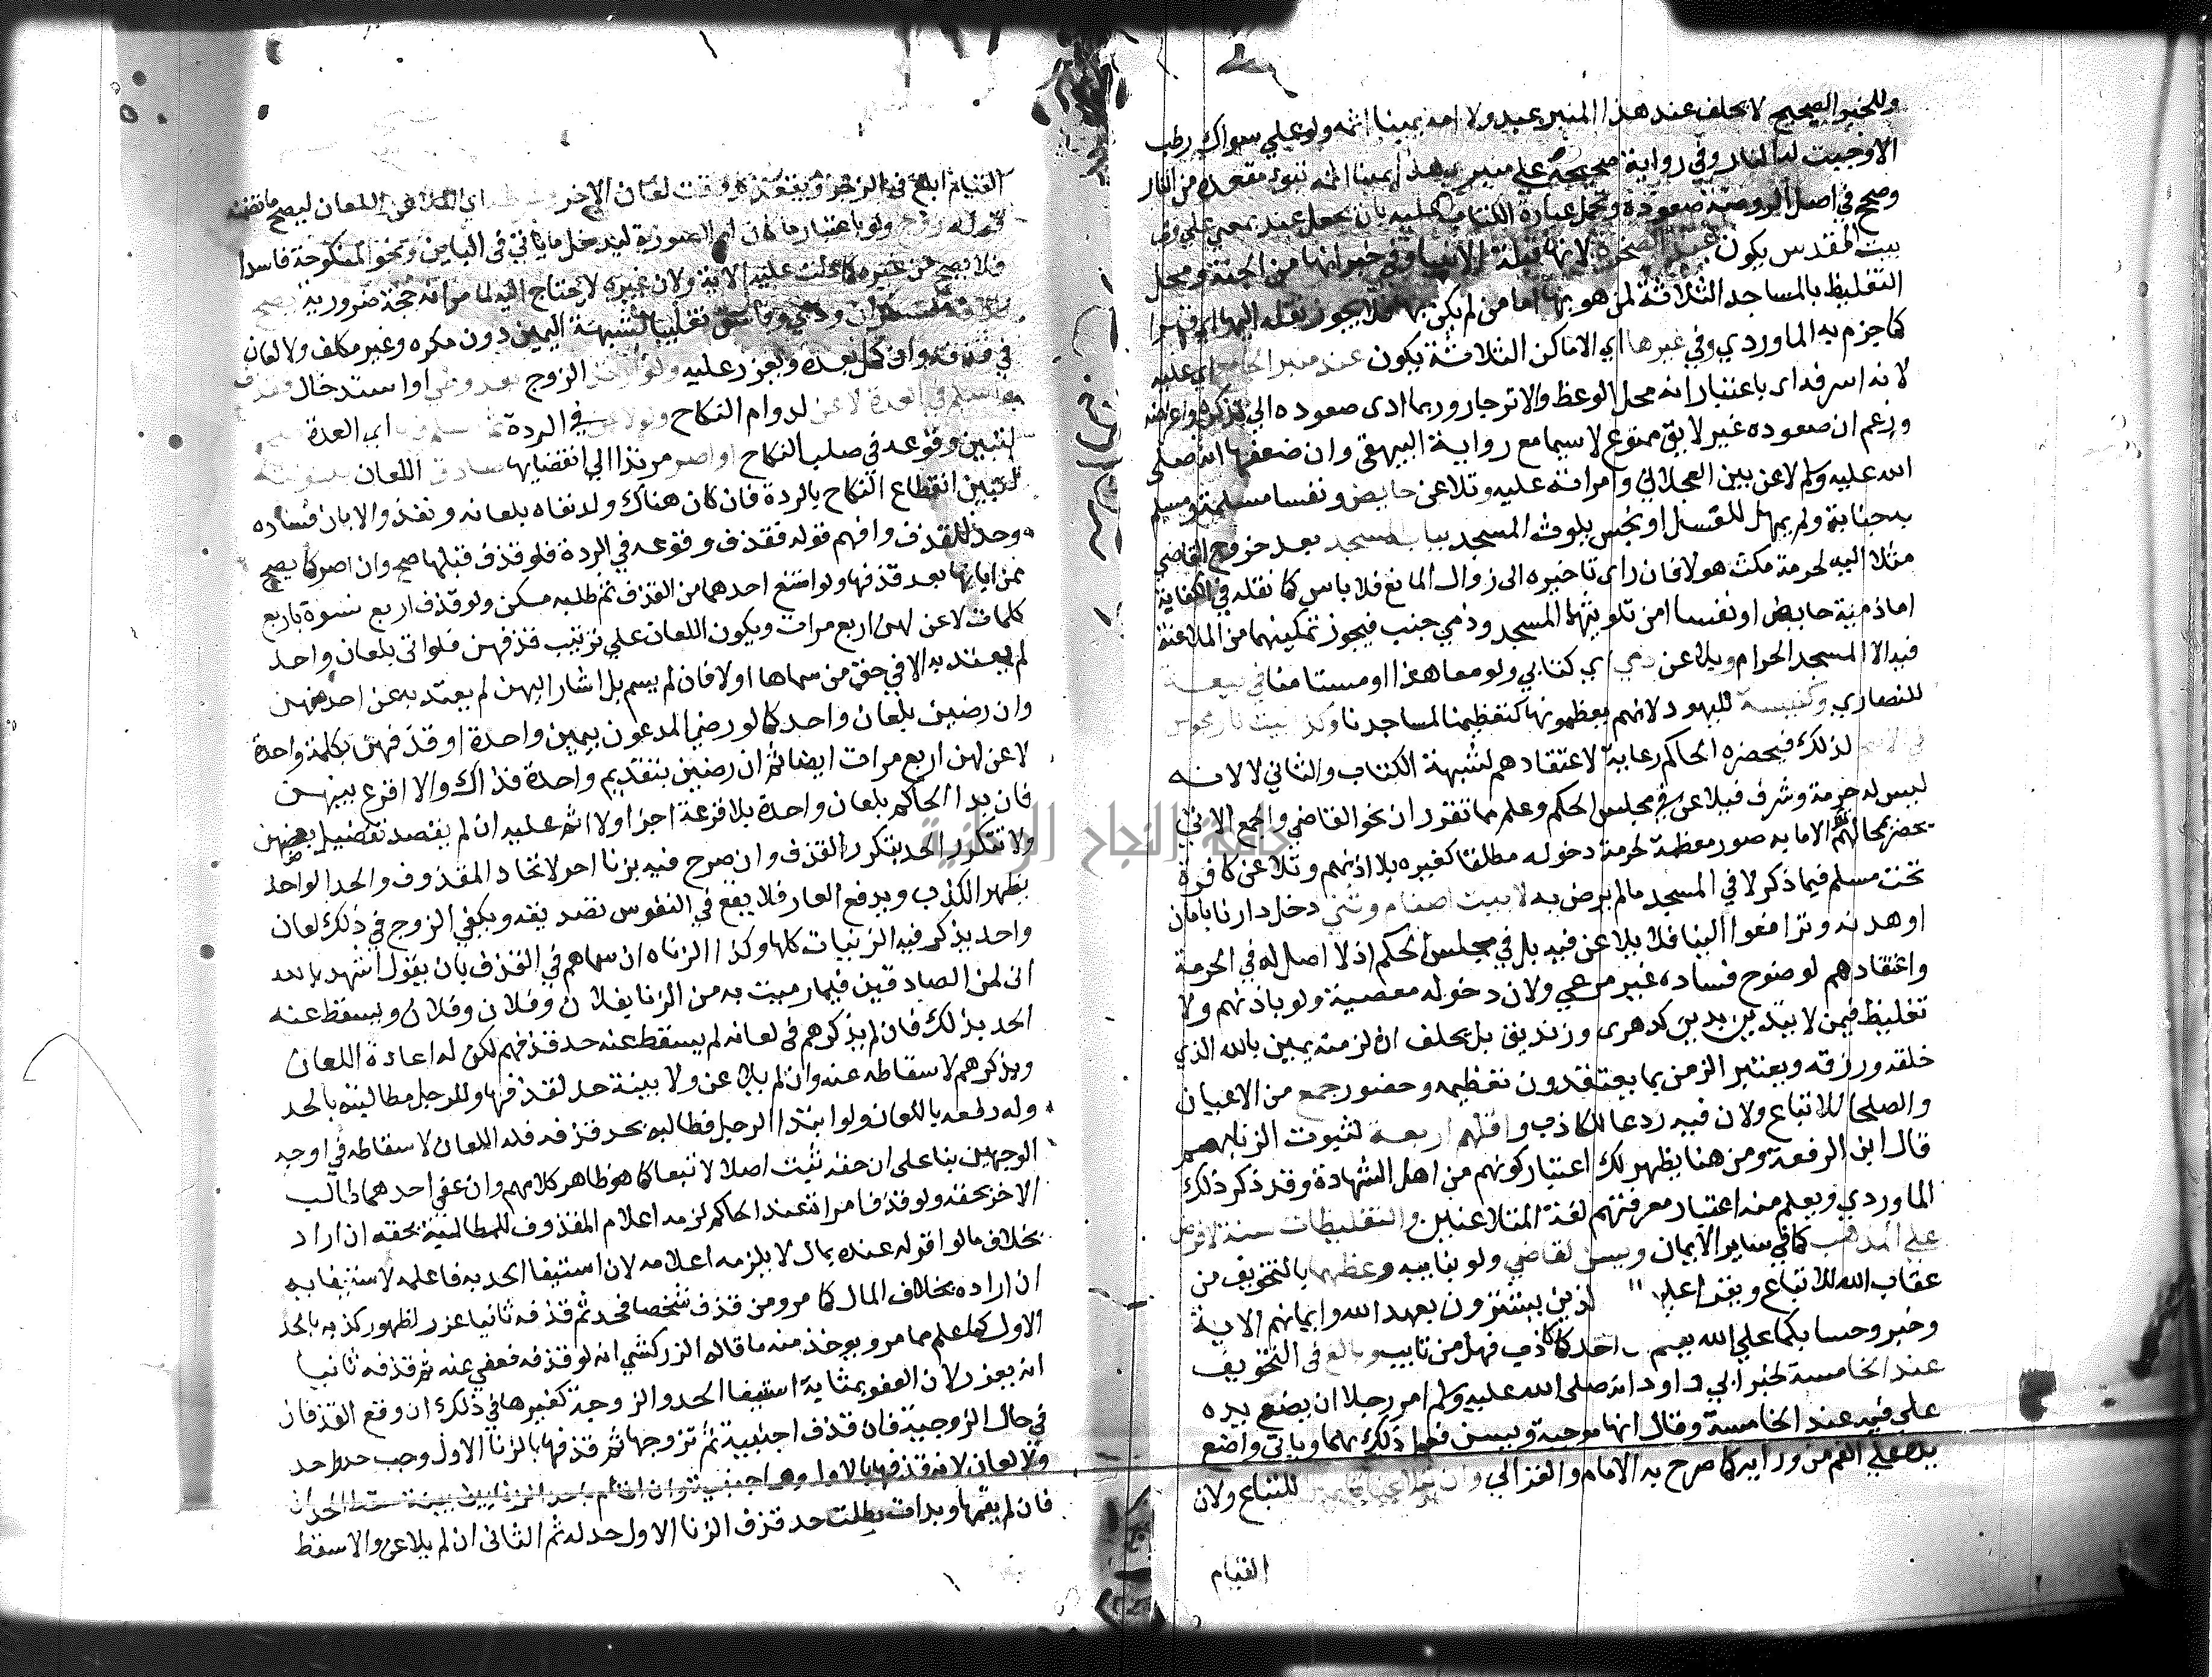 وللخبر الصحيح لا يحلف عند هذا المنبر عبد ولا امة يمينا اثمة ولو على سواك رطب
الا وجبت له النار وفي رواية صحيحة على منبري هذا يمينا اثمة تبوء مقعده من النار
وصحح في اصل الروضة صعوده وتحمل عبارة الكتاب عليه بان يجعل عند بمعنى على وفي
بيت المقدس يكون عند الصخرة لانها قبلة الانبياء وفي خبر انها من الجنة ومحل
التغليظ بالمساجد الثلاثة لمن هو بها اما من لم يكن بها فلا يجوز نقله اليها اي قهرا
كما جزم به الماوردي وفي غيرها اي الاماكن الثلاثة يكون عند منبر الجامع اي عليه
لانه اشرفه اي باعتبار انه محل الوعظ والانزجار وربما ادى صعوده الى تذكره واعراضه
وزعم ان صعوده غير لايق ممنوع لا سيما مع رواية البيهقي وان ضعفها انه صلى
الله عليه وسلم لاعن بين العجلاني وامراته عليه وتلاعن حايض ونفسا مسلمة ومسلم
به جنابة ولم يمهل للغسل او نجس يلوث المسجد بباب المسجد بعد خروج القاضي
مثلا اليه لحرمة مكث هولا فان راى تاخيره الى زوال المانع فلا باس كما نقله في الكفاية
اما ذمية حايض او نفسا امن تلويثها المسجد وذمي جنب فيجوز تمكينهما من الملاعنة
فيه الا المسجد الحرام ويلاعن ذمي اي كتابي ولو معاهدا او مستامنا في بيعة
للنصارى وكنيسة لليهود لانهم يعظمونها كتعظيمنا لمساجدنا وكذا بيت نار مجوس
في الاصح لذلك فيحضره الحاكم رعاية لاعتقادهم لشبهة الكتاب والثاني لا لانه
ليس له حرمة وشرف فيلاعن في مجلس الحكم وعلم مما تقرر ان نحو القاضي والجمع الاتي
يحضر بمحالهم الا ما به صور معظمة لحرمة دخوله مطلقا كغيره بلا اذنهم وتلاعن كافرة
تحت مسلم فيما ذكر لا في المسجد ما لم يرض به لا بيت اصنام وثني دخل دارنا بامان
او هدنة وترافعوا الينا فلا يلاعن فيه بل في مجلس الحكم اذ لا اصل له في الحرمة
واعتقادهم لوضوح فساده غير مرعي ولان دخوله معصية ولو باذنهم ولا
تغليظ فيمن لا يتدين بدين كدهري وزنديق بل يحلف ان لزمته يمين بالله الذي
خلقه ورزقه ويعتبر الزمن بما يعتقدون تعظيمه وحضور جمع من الاعيان
والصلحا للاتباع ولان فيه ردعا للكاذب واقلهم اربعة لثبوت الزنا بهم
قال ابن الرفعة ومن هنا يظهر لك اعتبار كونهم من اهل الشهادة وقد ذكر ذلك
الماوردي ويعلم منه اعتبار معرفتهم لغة المتلاعنين والتغليظات سنة لا فرض
على المذهب كما في ساير الايمان ويسن لقاضي ولو بنايبه وعظهما بالتخويف من
عقاب الله للاتباع ويقرا عليهما الذين يشترون بعهد الله وايمانهم الاية
وخبر وحسابكما على الله يعلم احدكما كاذب فهل من تايب ويبالغ في التخويف
عند الخامسة لخبر ابي داود انه صلى الله عليه وسلم امر رجلا ان يضع يده
على فيه عند الخامسة وقال انها موجبة ويسن فعل ذلك بهما وياتي واضع
يده على الفم من ورايه كما صرح به الامام والغزالي وان يتلاعنا قايمين للاتباع ولان
القيام
القيام ابلغ في الزجر وتقعد هي وقت لعان الاخر وشرطه اي الملاعن اللعان ليصح ما تضمنه
قوله زوج ولو باعتبار ما كان او الصورة ليدخل ما ياتي في الباين ونحو المنكوحة فاسدا
فلا يصح من غيره كما دلت عليه الاية ولان غيره لا يحتاج اليه لما مر انه حجة ضرورية يصح
طلاقه كسكران وذمي وفاسق تغليبا لشبهة اليمين دون مكره وغير مكلف ولا لعان
في قذفه وان كمل بعده ويعزر عليه ولو ارتد الزوج بعد وطئ او استدخال وقذف
واسلم في العدة لاعن لدوام النكاح ولو لاعن في الردة ثم اسلم فيها اي العدة صح
لتبين وقوعه في صلب النكاح او اصر مرتدا الى انقضايها صادف اللعان بينونة
لتبين انقطاع النكاح بالردة فان كان هناك ولد نفاه بلعانه ونفذ والا بان فساده
وحد للقذف وافهم قوله فقذف وقوعه في الردة فلو قذف قبلها صح وان اصر كما يصح
ممن ابانها بعد قذفها ولو امتنع احدهما من القذف ثم طلبه مكن ولو قذف اربع نسوة باربع
كلمات لاعن لهن اربع مرات ويكون اللعان على ترتيب قذفهن فلو اتى بلعان واحد
لم يعتد به الا في حق من سماها اولا فان لم يسم بل اشار اليهن لم يعتد به عن احد منهن
وان رضين بلعان واحد كما لو رضي المدعون بيمين واحدة او قذفهن بكلمة واحدة
لاعن لهن اربع مرات ايضا ثم ان رضين بتقديم واحدة فذاك والا اقرع بينهن
فان بدا الحاكم بلعان واحدة بلا قرعة اجزا ولا اثم عليه ان لم يقصد تفضيل بعضهن
ولا تتكرر الحد بتكرر القذف وان صرح فيه بزنا اخر لاتحاد المقذوف والحد الواحد
يظهر الكذب ويدفع العار فلا يقع في النفوس تصديقه ويكفي الزوج في ذلك لعان
واحد يذكر فيه الزنيات كلها وكذا الزناه ان سماهم في القذف بان يقول اشهد بالله
اني لمن الصادقين فيما رميت به من الزنا بفلان وفلان وفلان ويسقط عنه
الحد بذلك فان لم يذكرهم في لعانه لم يسقط عنه حد قذفهم لكن له اعادة اللعان
ويذكرهم لاسقاطه عنه وان لم يلاعن ولا بينة حد لقذفها وللرجل مطالبته بالحد
وله دفعه باللعان ولو ابتدا الرجل فطالبه بحد قذفه فله اللعان لاسقاطه في اوجه
الوجهين بنا على ان حقه ثبت اصلا لا تبعا كما هو ظاهر كلامهم وان عفى احدهما طالب
الاخر بحقه ولو قذف امراته عند الحاكم لزمه اعلام المقذوف للمطالبة بحقه ان اراد
بخلاف ما لو اقر له عنده بمال لا يلزمه اعلامه لان استيفا الحد به فاعلمه لاستيفايه
ان اراده بخلاف المال كما مر ومن قذف شخصا فحد ثم قذفه ثانيا عزر لظهور كذبه بالحد
الاول كما علم مما مر ويوخذ منه ما قاله الزركشي انه لو قذفه فعفي عنه ثم قذفه ثانيا
انه يعزر لان العفو بمثابة استيفا الحد والزوجية كغيرها في ذلك ان وقع القذفان
في حال الزوجية فان قذف اجنبية ثم تزوجها ثم قذفها بالزنا الاول وجب حد واحد
ولا لعان لانه قذفها بالاول وهي اجنبية
فان لم يقمها وبدات بطلب حد قذف الزنا الاول حد له ثم الثاني ان لم يلاعن والا سقط